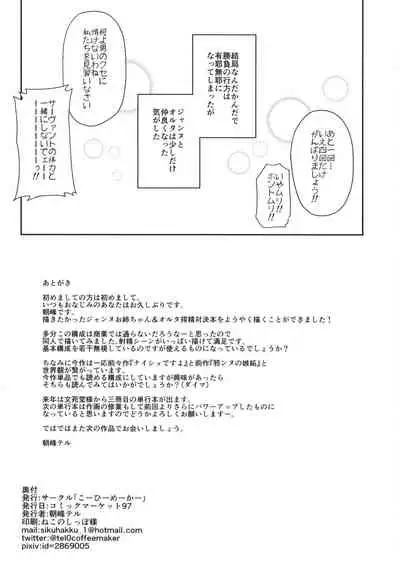 結局なんだかんだで
勝負の行方は
有耶無耶に
なってしまったが
ジャンヌと
オルタは少しだけ
仲良くなった
気がした
あと一回…
いえ四回だけ
がんばりましょう!!
いやムリ!!
ホントムリ!!
何よ男のクセに
情けないわね
私たちを見習いなさい
サーヴァントの体力と
一緒にしないでェーー
ーーーーーーーぅ!!
あとがき
初めましての方は初めまして。
いつもおなじみのあなたはお久しぶりです。
朝峰です。
描きたかったジャンヌお姉ちゃん&オルタ搾精対決本をようやく描くことができました!
多分この構成は商業では通らないだろうなーと思ったので
同人で描いてみました。射精シーンがいっぱい描けて満足です。
基本構成を若干無視しているのですが使えるものになっているでしょうか?
ちなみに今作は一応前々作『ナイショですよ』と前作『邪ンヌの嫉妬』と
世界観が繋がっています。
今作単品でも読める構成にしていますが興味があったら
そちらも読んでみてはいかがでしょうか?(ダイマ)
来年は文苑堂様から三冊目の単行本が出ます。
次の単行本は作画の修業もして前回よりさらにパワーアップしたものに
なっていると思いますのでどうかよろしくお願いしますー。
ではではまた次の作品でお会いしましょう。
朝峰テル
奥付
発行:サークル「こーひーめーかー」
発行日:コミックマーケット97
発行者:朝峰テル
印刷:ねこのしっぽ様
mail:sikuhakku_1@hotmail.com
twitter:@tel0coffeemaker
pixiv:id=2869005